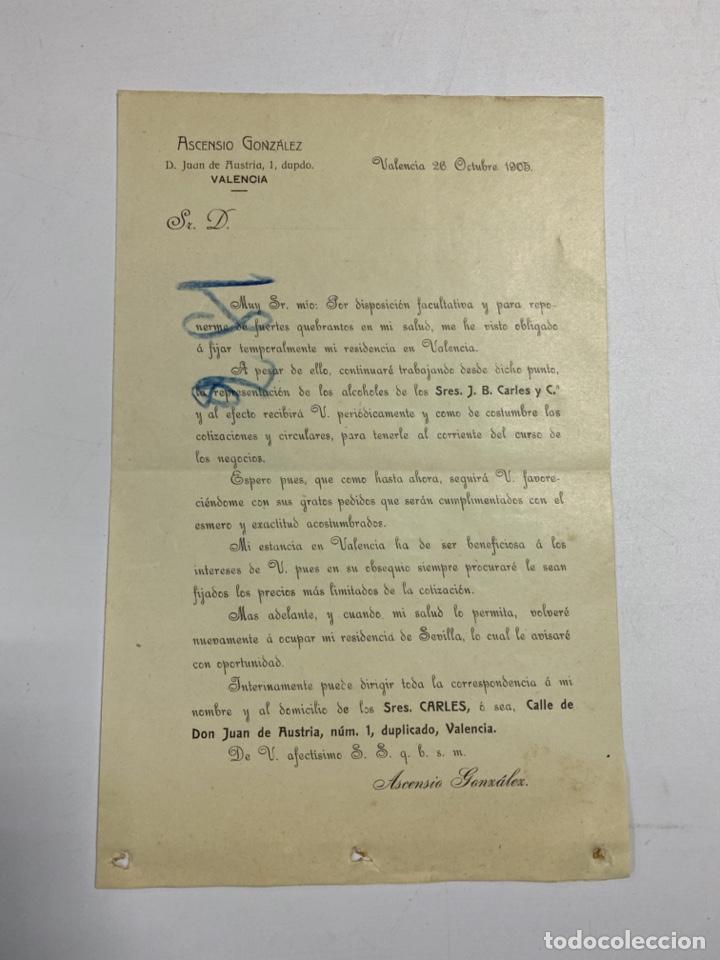 ASCENSIO GONZÁLEZ
D. Juan de Austria, 1, dupdo.
VALENCIA
Valencia 26 Octubre 1905.
Sr. D.
Muy Sr. mio: Por disposición facultativa y para repo-
nerme de fuertes quebrantos en mi salud, me he visto obligado
á fijar temporalmente mi residencia en Valencia.
A pesar de ello, continuaré trabajando desde dicho punto,
la representación de los alcoholes de los Sres. J. B. Carles y C.ª
y al efecto recibirá V. periódicamente y como de costumbre las
cotizaciones y circulares, para tenerle al corriente del curso de
los negocios.
Espero pues, que como hasta ahora, seguirá V. favore-
ciéndome con sus gratos pedidos que serán cumplimentados con el
esmero y exactitud acostumbrados.
Mi estancia en Valencia ha de ser beneficiosa á los
intereses de V. pues en su obsequio siempre procuraré le sean
fijados los precios más limitados de la cotización.
Mas adelante, y cuando mi salud lo permita, volveré
nuevamente á ocupar mi residencia de Sevilla, lo cual le avisaré
con oportunidad.
Interinamente puede dirigir toda la correspondencia á mi
nombre y al domicilio de los Sres. CARLES, ó sea, Calle de
Don Juan de Austria, núm. 1, duplicado, Valencia.
De V. afectísimo S. S. q. b. s. m.
Ascensio González.
todocoleccion